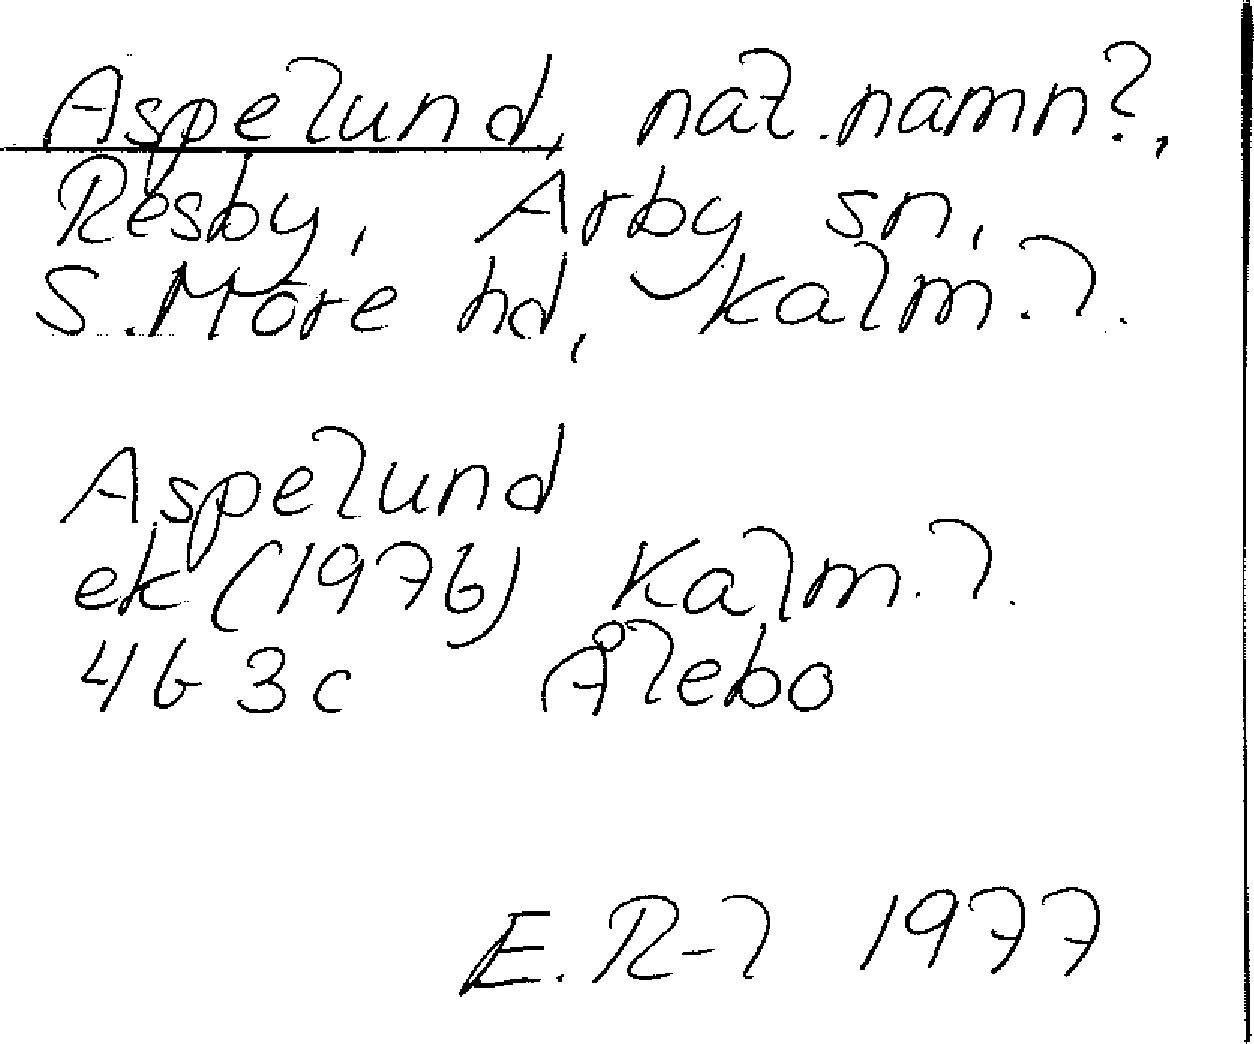 Aspelund, nat.namn?,
Resby, Arby sn,
S.Möre hd, Kalm.l.
Aspelund
ek (1976) Kalm.l.
4G 3c Ålebo
E.R-l 1977